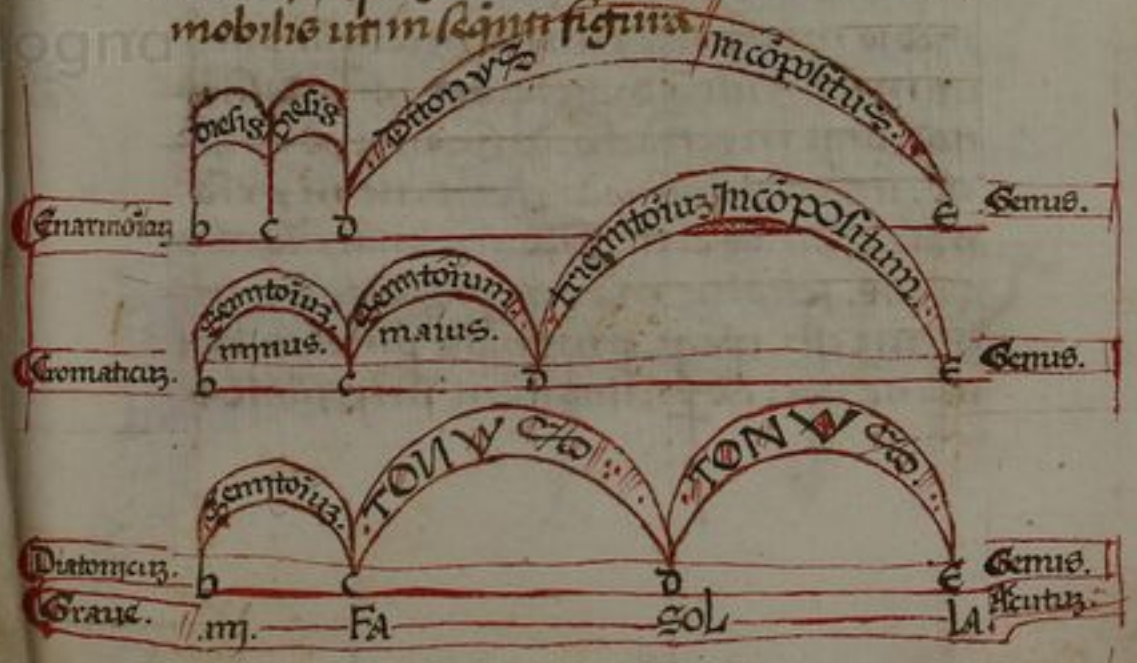 mobilis ut in seq̃nti figura.
Diesis Diesis Ditonus Incõpositus.
Enarmõicuʒ b C D E Genus.
Semitoĩuʒ minus. Semitoĩum maius. Triemitoĩuʒ Incõpositum.
Cromaticuʒ. b C D E Genus.
Semitoĩuʒ. TONUS TONUS
Diatonicuʒ. b C D E Genus.
Graue. .mi. FA SOL LA. Acutuʒ.